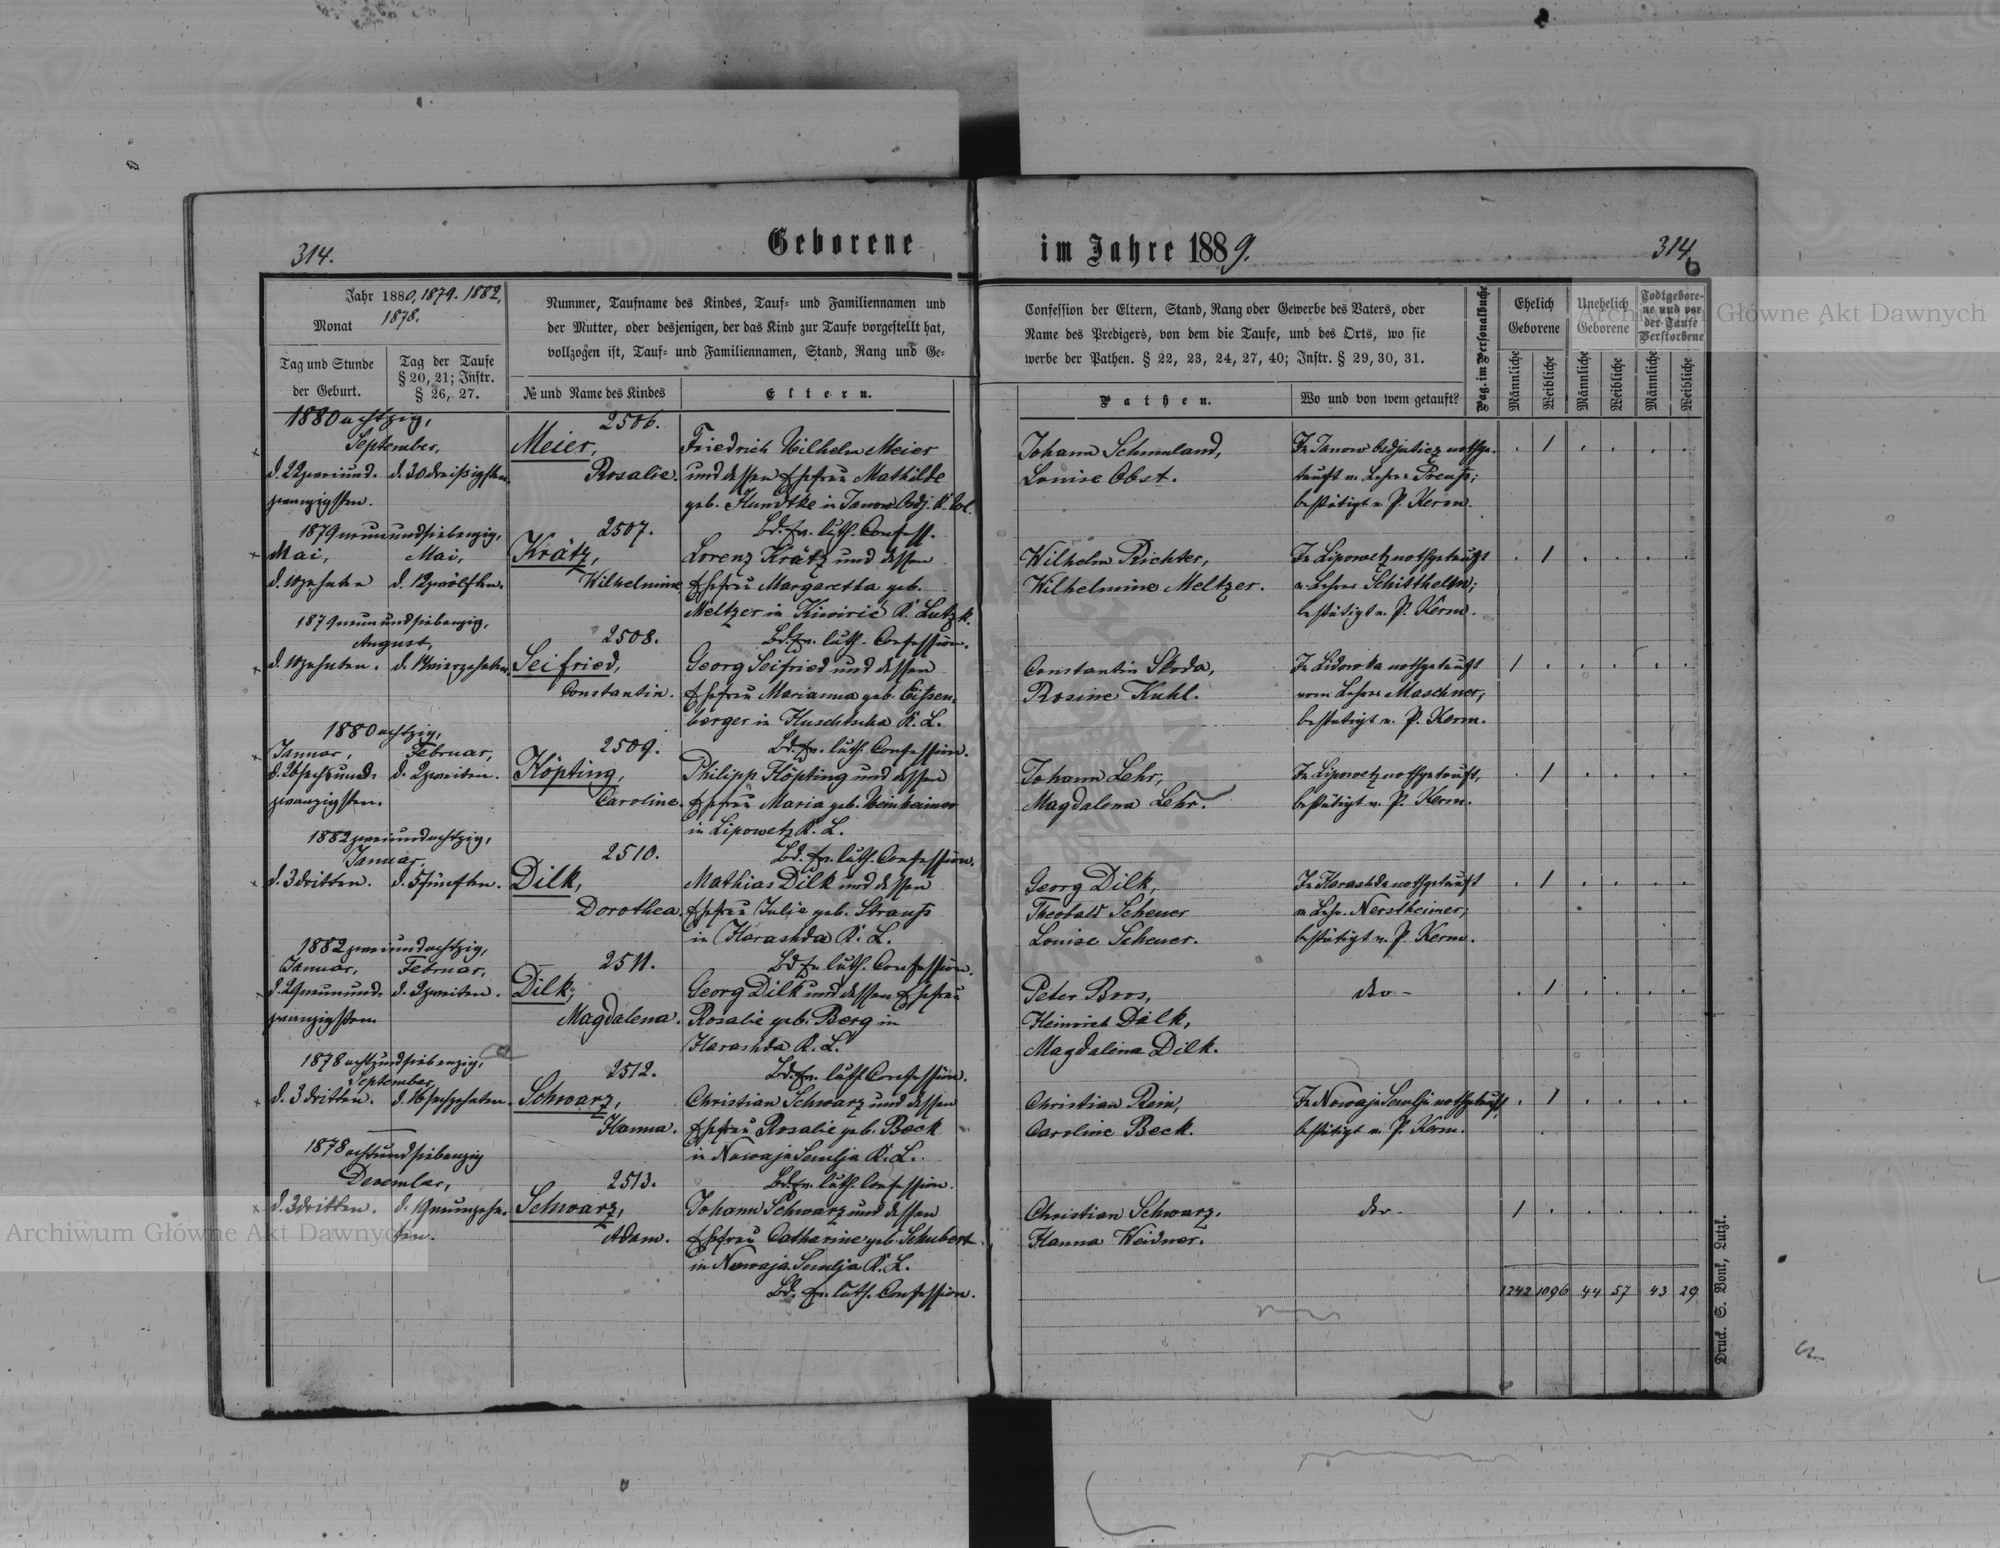 314.
Geborene
im Jahre 1889.
314
6
Jahr 1880, 1879. 1882,
1878.
Monat
Tag und Stunde
der Geburt.
Tag der Taufe
§ 20, 21; Instr.
§ 26, 27.
Nummer, Taufname des Kindes, Tauf- und Familiennamen und
der Mutter, oder desjenigen, der das Kind zur Taufe vorgestellt hat,
vollzogen ist, Tauf- und Familiennamen, Stand, Rang und Ge-
№ und Name des Kindes
Eltern.
Confession der Eltern, Stand, Rang oder Gewerbe des Vaters, oder
Name des Predigers, von dem die Taufe, und des Orts, wo sie
werbe der Pathen. § 22, 23, 24, 27, 40; Instr. § 29, 30, 31.
Pathen.
Wo und von wem getauft?
Pag. im Personalbuche
Ehelich
Geborene
Unehelich
Geborene
Todtgebore-
ne und vor
der Taufe
Verstorbene
Männliche
Weibliche
Männliche
Weibliche
Männliche
Weibliche
1880 achtzig,
September,
d. 22 zweiund-
zwanzigsten.
d. 30 dreißigsten.
2506.
Meier,
Rosalie.
Friedrich Wilhelm Meier
und dessen Ehefrau Mathilde
geb. Kundtke in Janow
Bd. ev. luth. Confess.
Johann Schmuland,
Louise Obst.
In Janow nothge-
tauft v. Lehrer Preuß;
bestätigt v. P. Kerm.
1
1879 neunundsiebenzig,
Mai,
Mai,
d. 10 zehnten
d. 12 zwölften.
2507.
Krätz,
Wilhelmine
Lorenz Krätz und dessen
Ehefrau Margaretha geb.
Meltzer in Kiwiric K. Lutzk.
Bd. ev. luth. Confession.
Wilhelm Richter,
Wilhelmine Meltzer.
In Lipowetz nothgetauft
v. Lehrer Schitthelm;
bestätigt v. P. Kerm.
1
1879 neunundsiebenzig,
August,
d. 10 zehnten.
d. 14 vierzehnten.
2508.
Seifried,
Constantin.
Georg Seifried und dessen
Ehefrau Marianna geb. Eitzen-
berger in Huschtscha K. L.
Bd. ev. luth. Confession.
Constantin Skoda,
Rosine Kuhl.
In Lidowka nothgetauft
vom Lehrer Maschner;
bestätigt v. P. Kerm.
1
1880 achtzig,
Januar,
Februar,
d. 26 sechsund-
zwanzigsten.
d. 2 zweiten.
2509.
Höpting,
Caroline.
Philipp Höpting und dessen
Ehefrau Maria geb. Weinheimer
in Lipowetz K. L.
Bd. ev. luth. Confession.
Johann Lehr,
Magdalena Lehr.
In Lipowetz nothgetauft,
bestätigt v. P. Kerm.
1
1882 zweiundachtzig,
Januar.
d. 3 dritten.
d. 5 fünften.
2510.
Dilk,
Dorothea.
Mathias Dilk und dessen
Ehefrau Julie geb. Strauß
in Harashda K. L.
Bd. ev. luth. Confession.
Georg Dilk,
Theobald Scheuer
Louise Scheuer.
In Harashda nothgetauft
v. Lehr. Nerstheimer;
bestätigt v. P. Kerm.
1
1882 zweiundachtzig,
Januar,
Februar,
d. 29 neunund-
zwanzigsten
d. 2 zweiten.
2511.
Dilk,
Magdalena.
Georg Dilk und dessen Ehefrau
Rosalie geb. Berg in
Harashda K. L.
Bd. ev. luth. Confession.
Peter Bros,
Heinrich Dilk,
Magdalena Dilk.
dto -
1
1878 achtundsiebenzig,
September,
d. 3 dritten.
d. 16 sechzehnten.
2512.
Schwarz,
Hanna.
Christian Schwarz und dessen
Ehefrau Rosalie geb. Beck
in Nowaja Semlja K. L.
Bd. ev. luth. Confession.
Christian Rein,
Caroline Beck.
In Nowaja Semlja nothgetauft,
bestätigt v. P. Kerm.
1
1878 achtundsiebenzig
Dezember,
d. 3 dritten.
d. 19 neunzehn-
ten.
2513.
Schwarz,
Adam.
Johann Schwarz und dessen
Ehefrau Catharine geb. Schubert
in Nowaja Semlja K. L.
Bd. ev. luth. Confession.
Christian Schwarz.
Hanna Weidner.
dto -
1
1242 1096 44 57 43 29
Druck. S. Bonk, Lutzk.
Archiwum Główne Akt Dawnych
Archiwum Główne Akt Dawnych